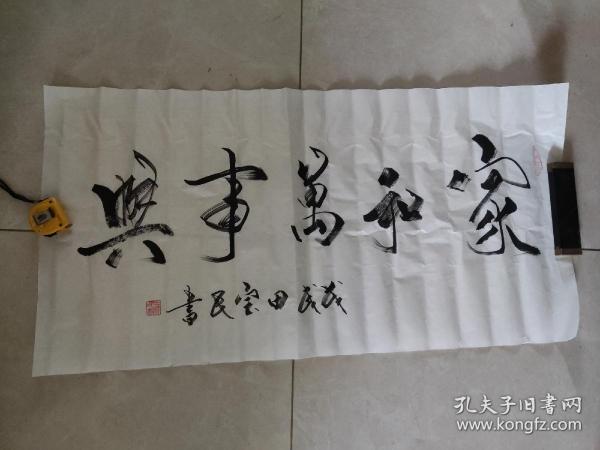 家和萬事興
戊戌田宝民書
孔夫子旧書网
www.kongfz.com